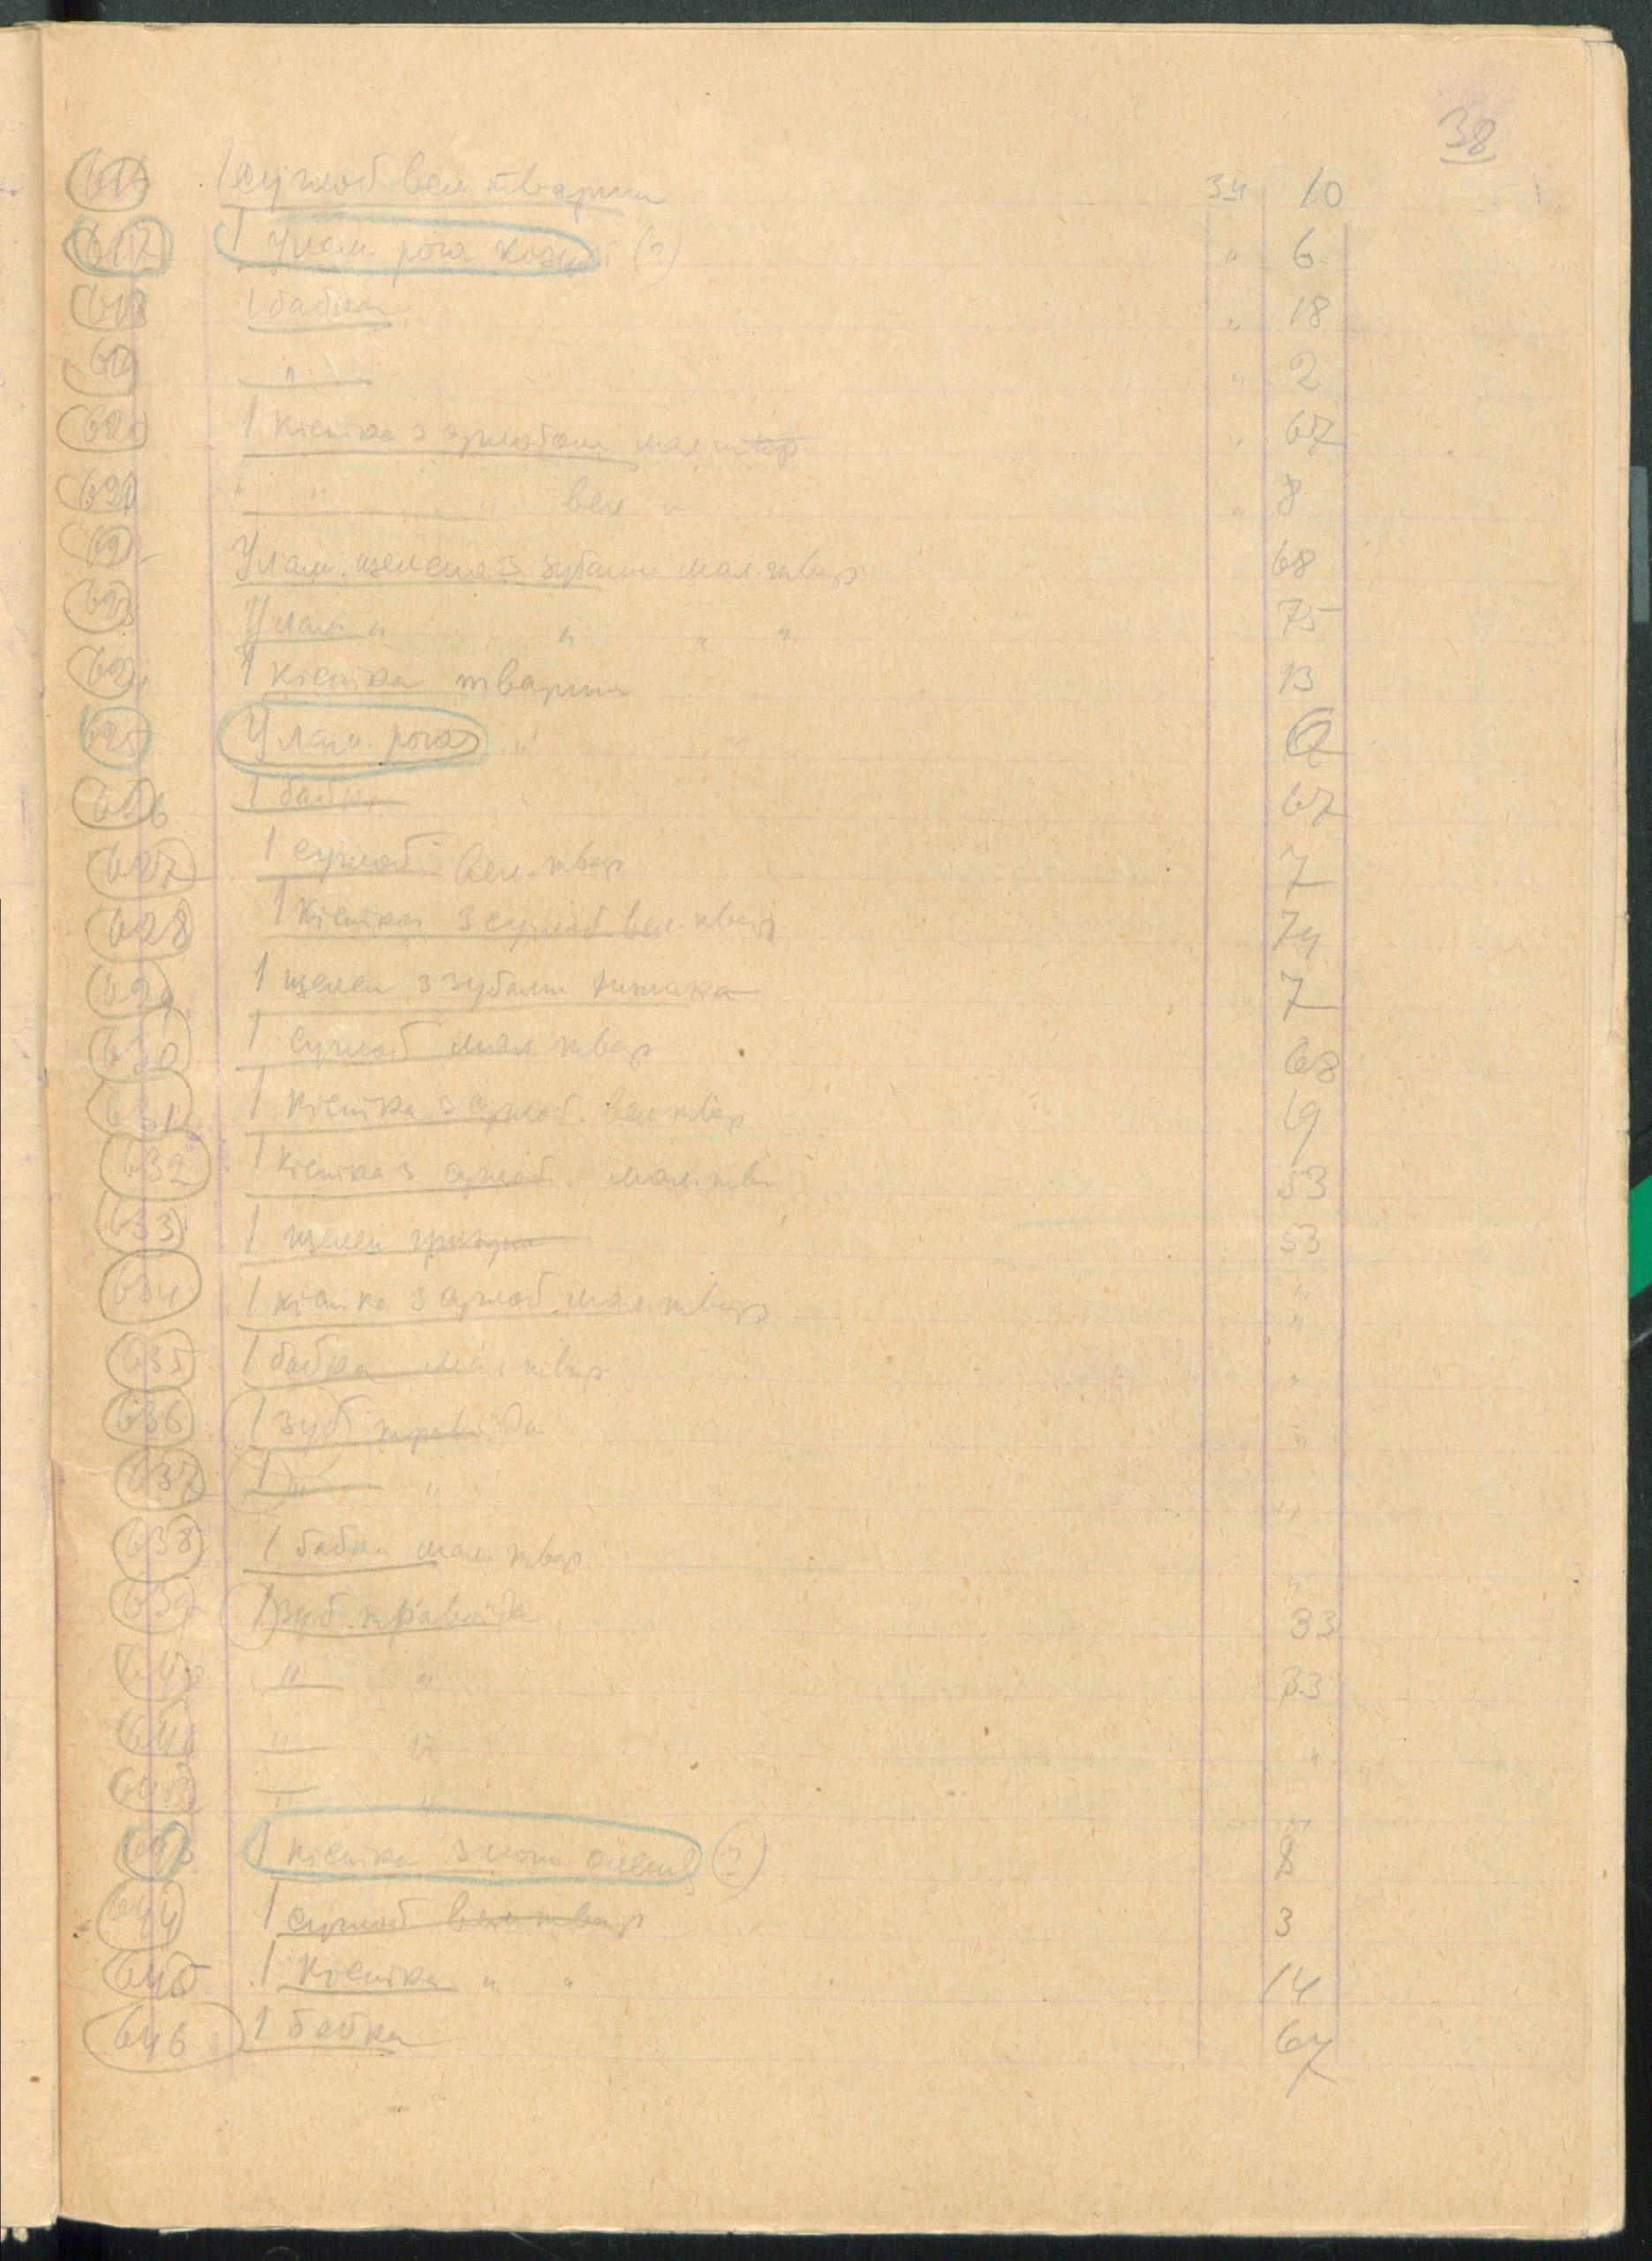 38
616 1 суглоб вел тварини 34 10
617 1 Улам. рога козулі (?) " 6
618 1 бабка " 18
619 " " 2
620 1 кістка з суглобом мал твар. " 67
621 " " " вел " " 8
622 Улам. щелепа з зубами мал. твар 68
623 Улам " " " " 75
624 1 кістка тварини 13
625 Улам. рога "
626 1 бабка 67
627 1 суглоб вел. твар 7
628 1 кістка з суглоб. вел. твар 74
629 1 щелеп з зубами хижака 7
630 1 суглоб мал твар 68
631 1 кістка з суглоб. вел твар 19
632 1 кістка з суглоб. мал. тв 53
633 1 щелеп гризуна 53
634 1 кістка з суглоб. мал. твар "
635 1 бабка мал. твар "
636 1 зуб травоїда "
637 1 " " "
638 1 бабка мал. твар. "
639 1 зуб. травоїда 33
640 " " 33
641 " " "
642 " " "
643 1 кістка з ноги оленя (?) 8
644 1 суглоб вел твар 3
645 1 кістка " " 14
646 1 бабка 67